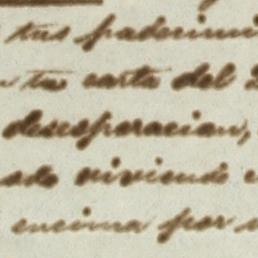 tus padecimi
tu carta del
desesperacion,
ado viviendo
encima por